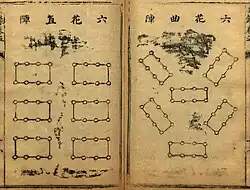 六花曲陣
六花直陣